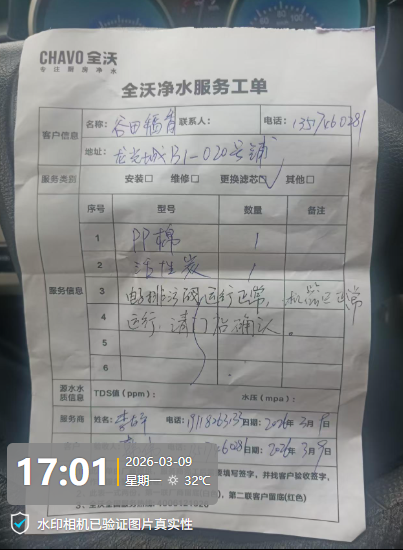 CHAVO 全沃
专注厨房净水
全沃净水服务工单
客户信息
名称：谷田稻香 联系人： 电话：
地址：龙光城B1-020号铺
服务类别 安装□ 维修□ 更换滤芯☑ 其他□
服务信息
序号 型号 数量 备注
1 PP棉 1
2 活性炭 1
3 运行正常，机器正常
4 运行，请门店确认。
5
6
源水水质信息 TDS值（ppm）： 水压（mpa）：
服务商 姓名： 电话： 日期：2026年3月9日
日期：2026年3月9日
填写签字，并找客户验收签字，
第二联客户留底(红色)
17:01
2026-03-09
星期一 32℃
水印相机已验证图片真实性